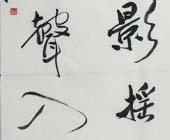 影摇
聲入